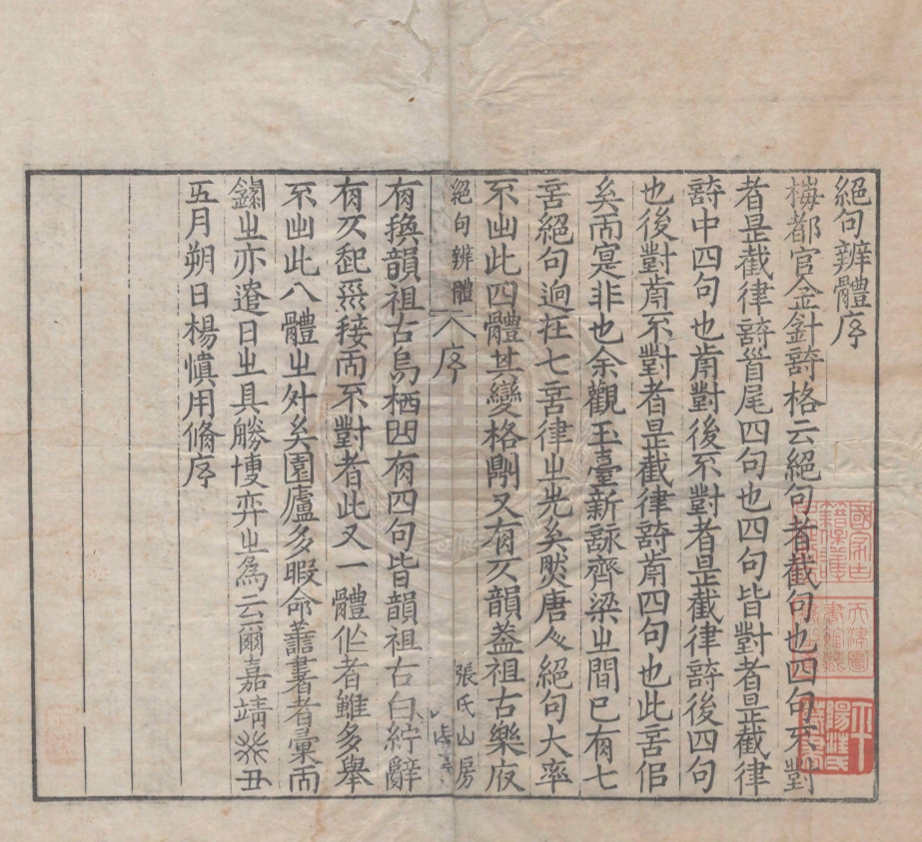 絕句辨體序
梅都官金針詩格云絕句者截句也四句不對
者是截律詩首尾四句也四句皆對者是截律
詩中四句也前對後不對者是截律詩後四句
也後對前不對者是截律詩前四句也此言佀
矣而寔非也余觀玉臺新詠齊梁之間已有七
言絕句迥在七言律之先矣然唐人絕句大率
不出此四體其變格則又有仄韻葢祖古樂府
絕句辨體 序 張氏山房
有換韻祖古烏栖曲有四句皆韻祖古白紵辭
有仄起平接而不對者此又一體作者雖多舉
不出此八體之外矣園廬多暇命善書者彙而
錄之亦遣日之具勝博弈之為云爾嘉靖癸丑
五月朔日楊慎用脩序
國家古籍保護
天津圖書館藏